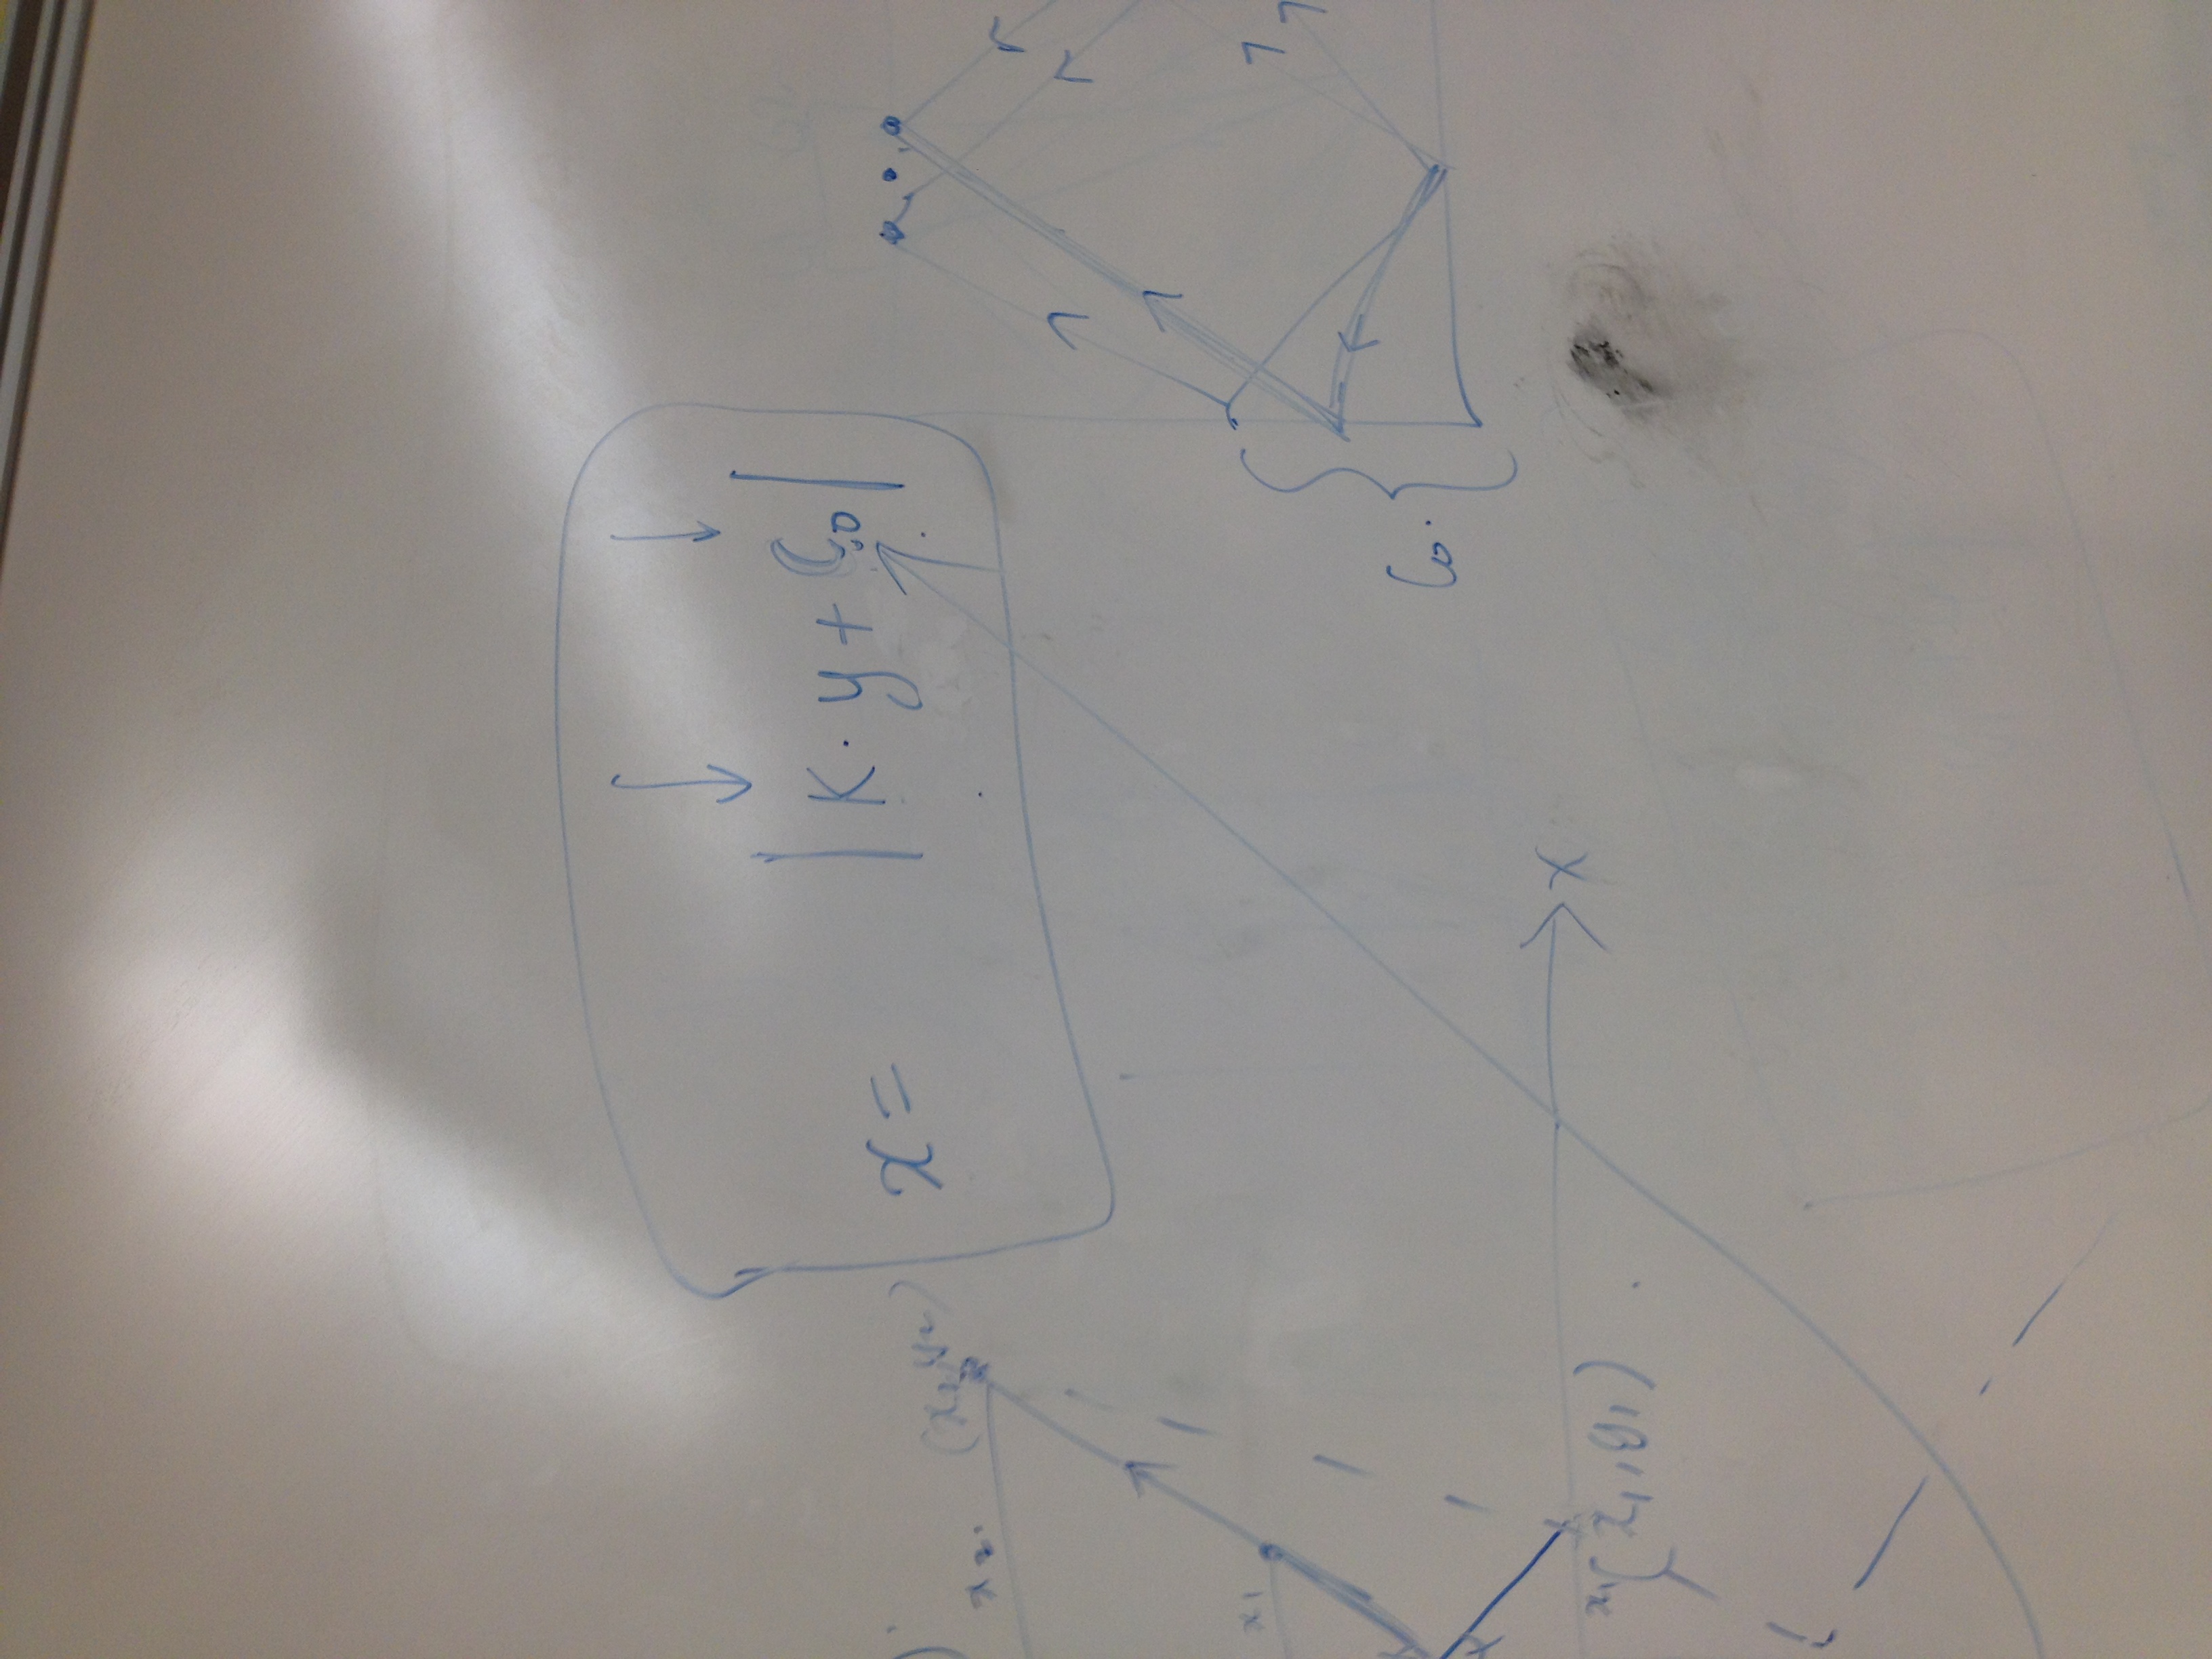 x = | K · y + C₀ |
x₂.
(x₂, y₂)
x₁
C₀.
X
x₁
(x₁, y₁)